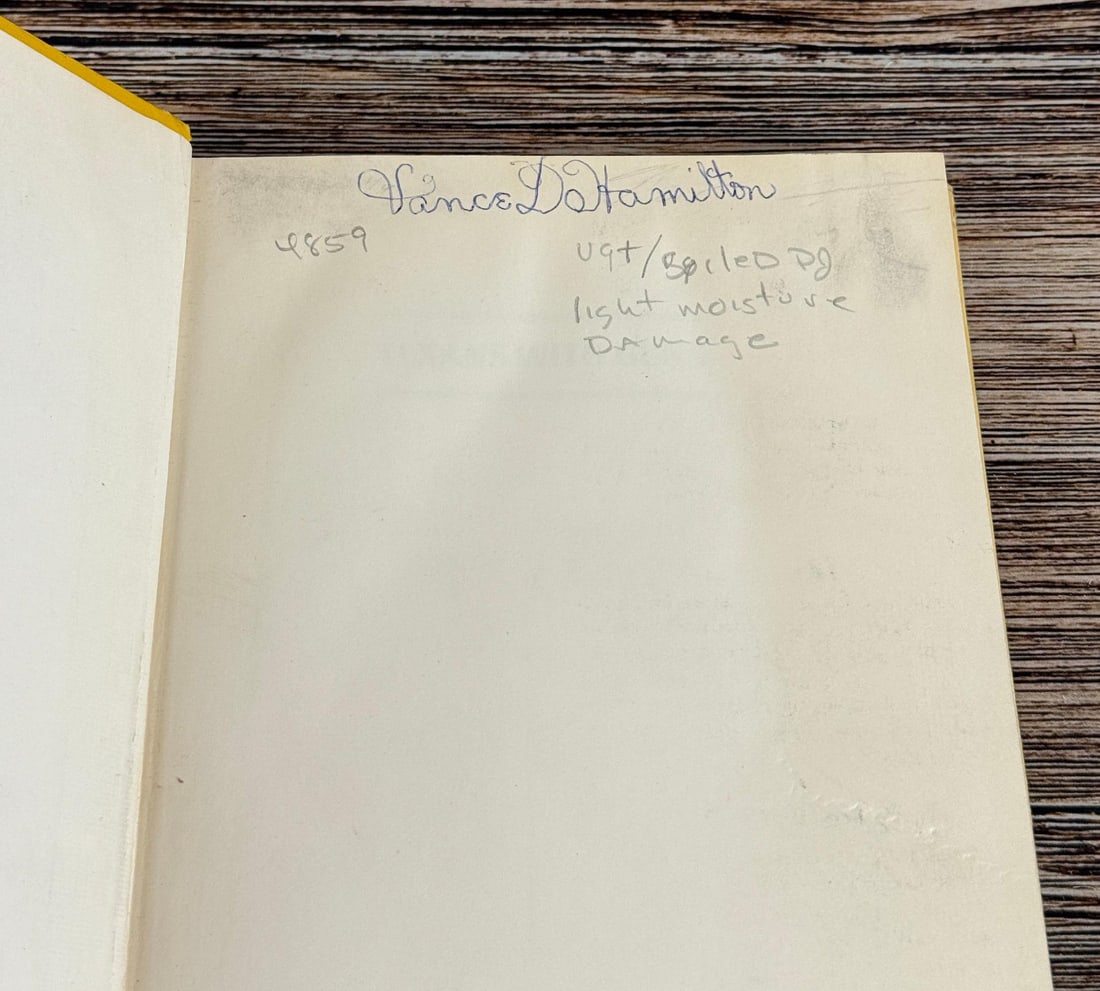 Vance D Hamilton
4859
vgt/Spiled DJ
light moisture
DAmage